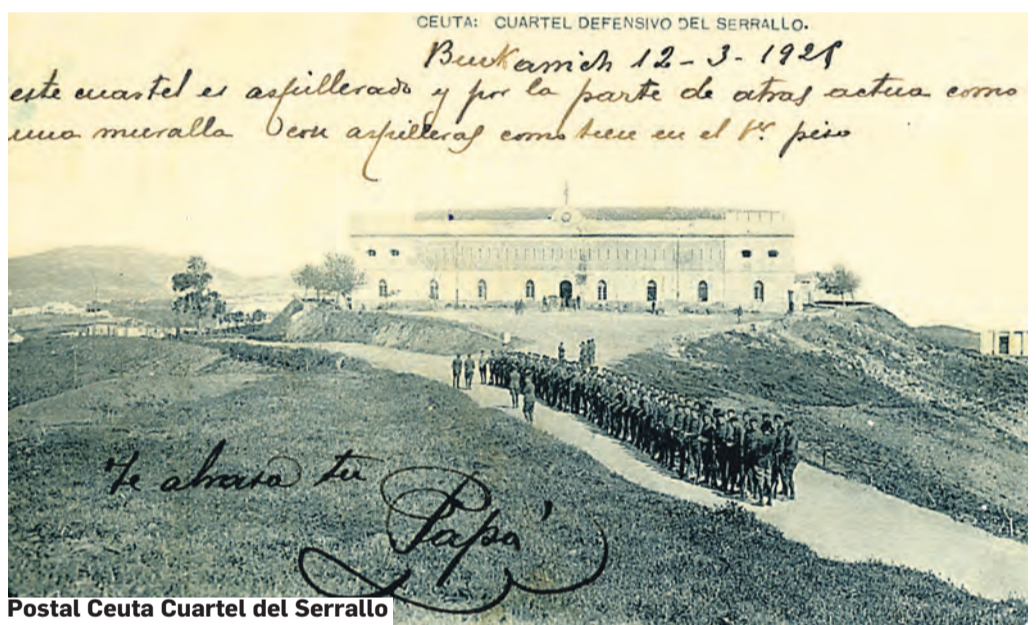 CEUTA: CUARTEL DEFENSIVO DEL SERRALLO.
12-3-192
este cuartel es aspillerado y por la parte de atras actua como
una muralla con aspilleras como tiene en el 1er piso
Te abrasa tu
Papá
Postal Ceuta Cuartel del Serrallo